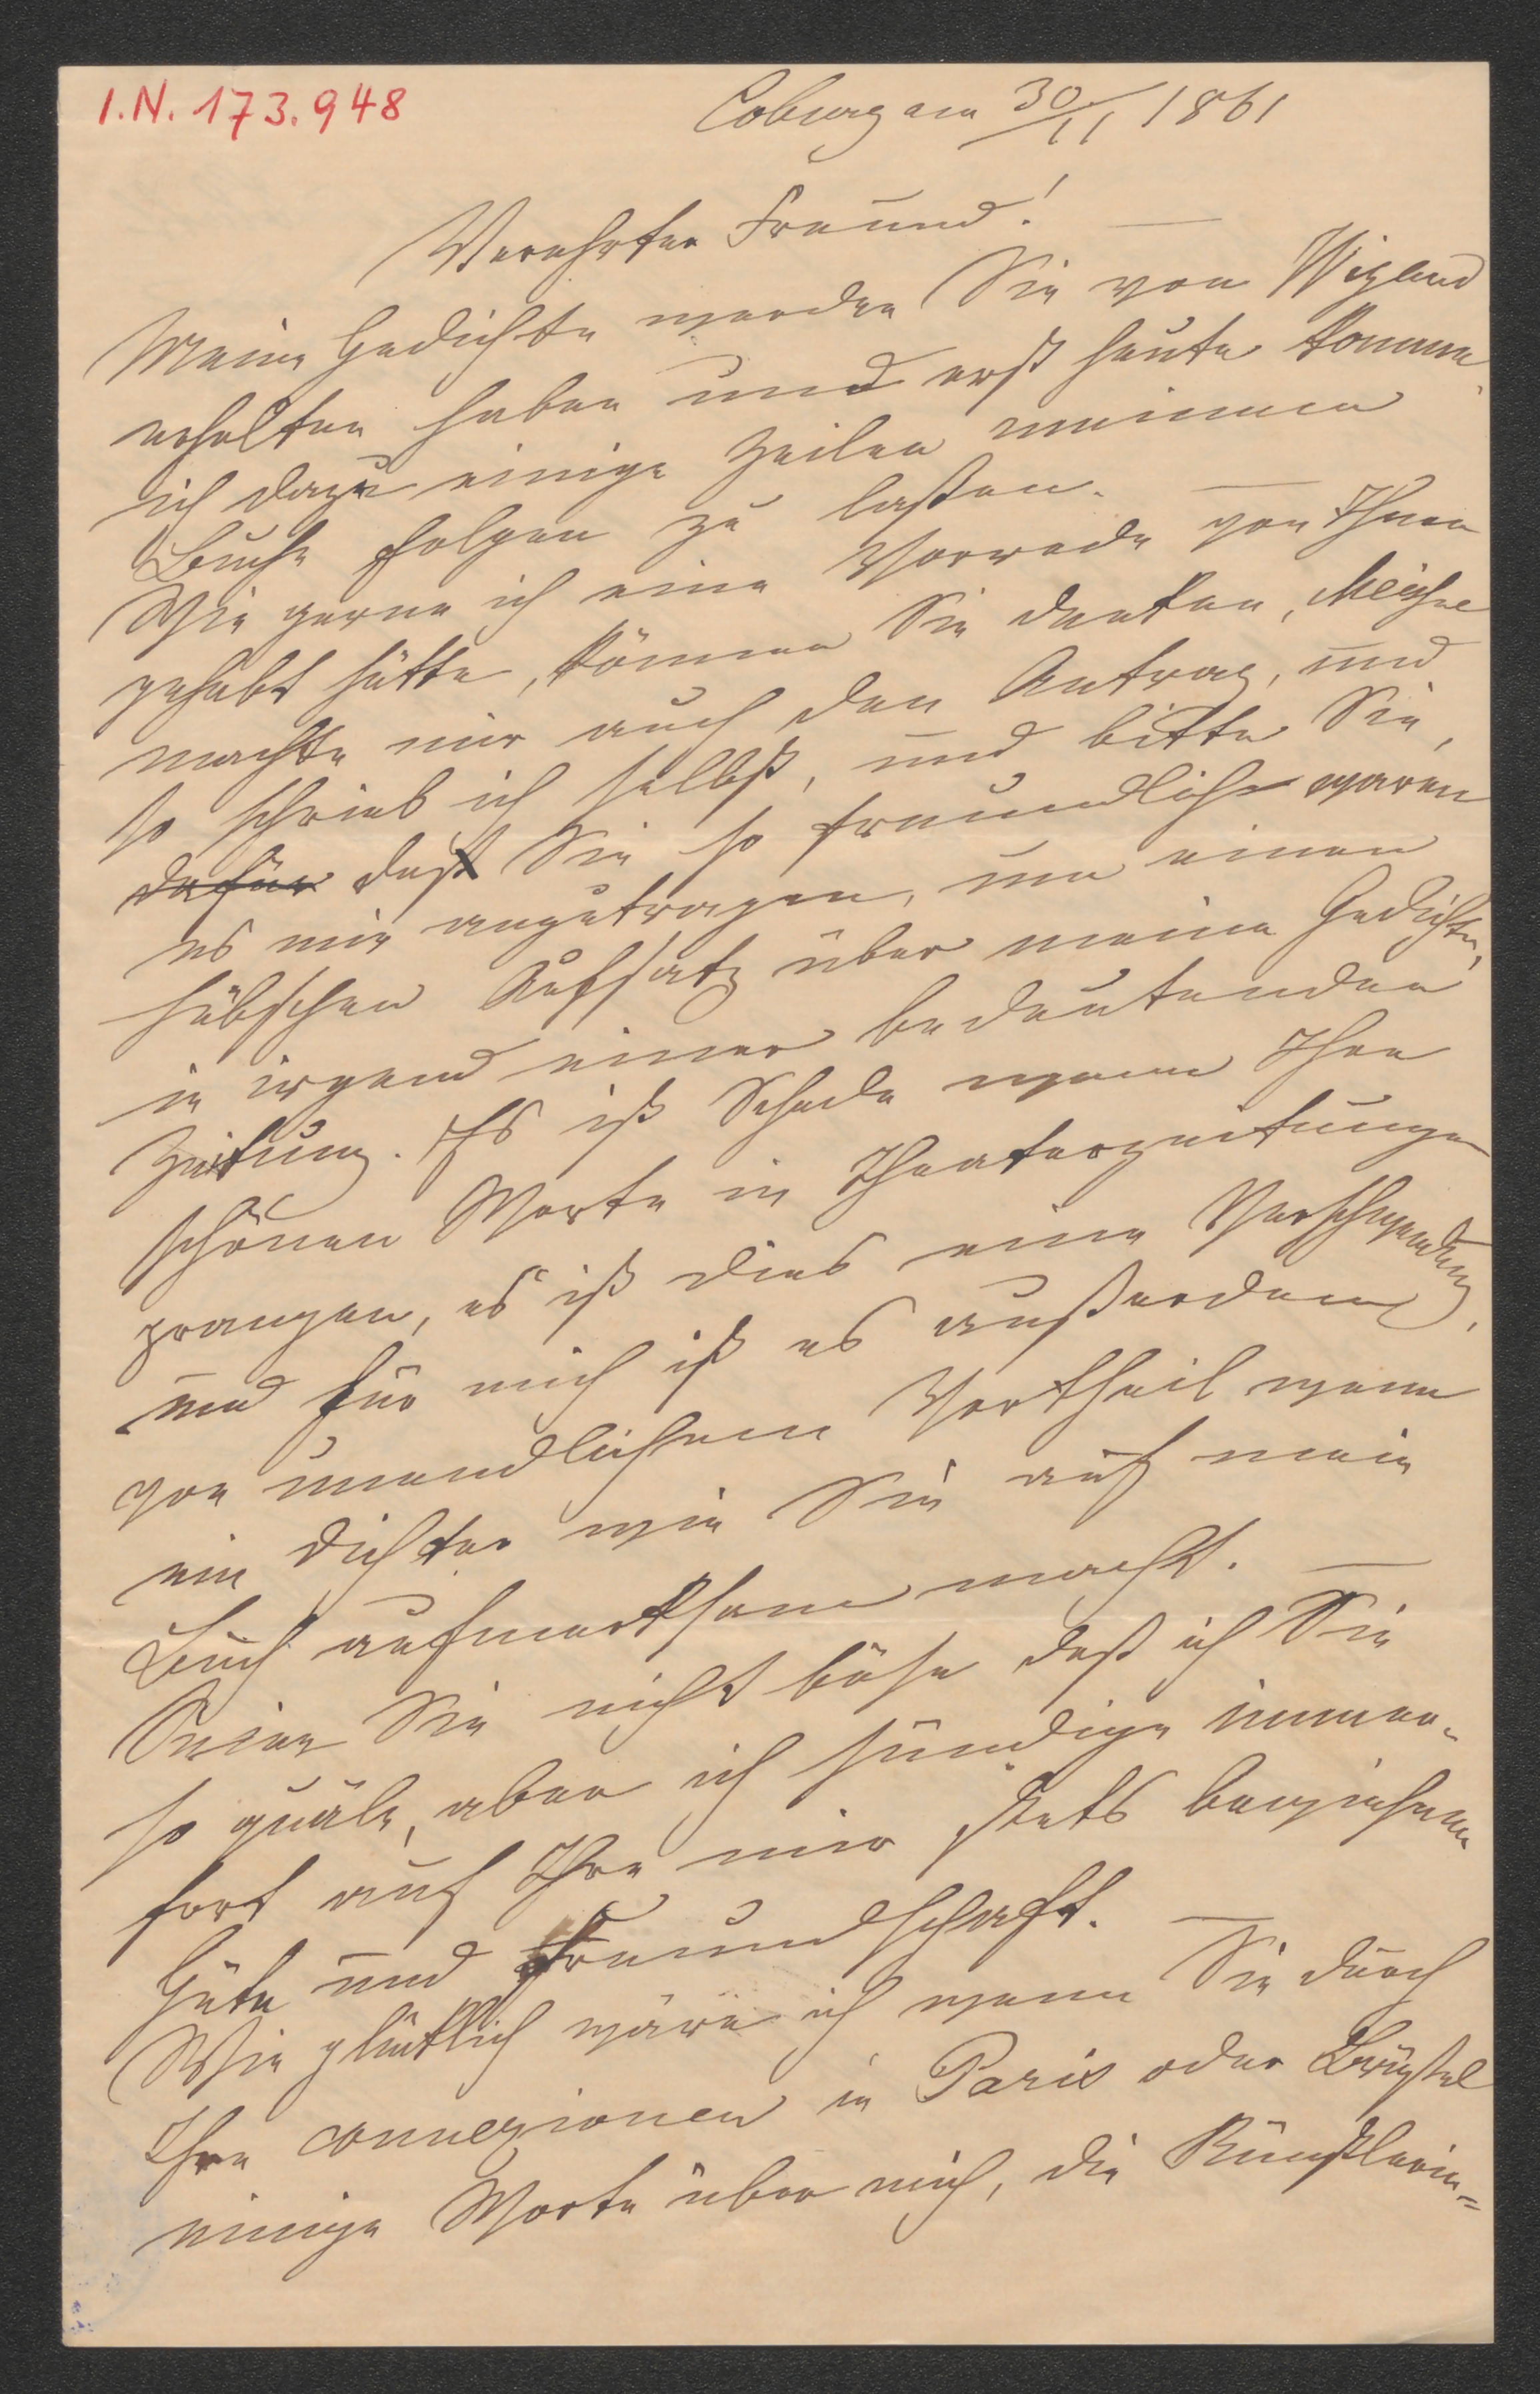 I.N. 173.948
Coburg am 30/11 1861
Verehrter Freund! —
Meine Gedichte werden Sie von Wigand
erhalten haben und erst heute komme
ich dazu einige Zeilen meinem
Buche folgen zu laßen. —
Wie gerne ich eine Vorrede von Ihnen
gehabt hätte, können Sie denken,
machte mir auch den Antrag, und
so schrieb ich selbst, und bitte Sie,
dafür daß Sie so freundlich waren
es mir anzutragen, um einen
hübschen Aufsatz über meine Gedichte,
in irgend einer bedeutenden
Zeitung. Es ist Schade wenn Ihre
schönen Worte in Theaterzeitungen
prangen, es ist dies eine Verschwendung,
und für mich ist es außerdem
von unendlichem Vortheil wenn
ein Dichter wie Sie auf mein
Buch aufmerksam macht. —
Seien Sie nicht böse daß ich Sie
so quäle, aber ich sündige immer-
fort auf Ihre mir stets bewiesene
Güte und Freundschaft. —
Wie glücklich wäre ich wenn Sie durch
Ihre connexionen in Paris oder Brüßel
einige Worte über mich, die Künstlerin=